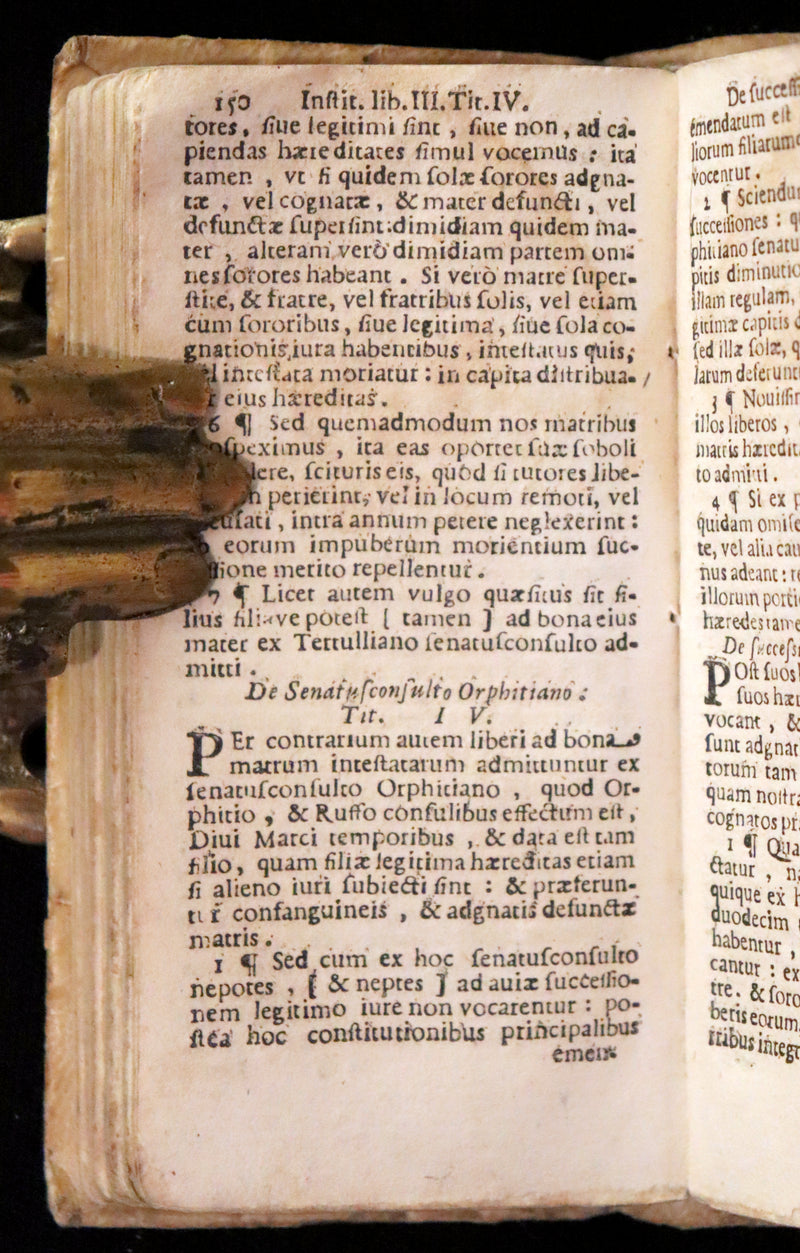 150 Inſtit. lib.III.Tit.IV.
tores, ſiue legitimi ſint , ſiue non, ad ca-
piendas hæreditates ſimul vocemus : ita
tamen , vt ſi quidem ſolæ ſorores adgna-
tæ , vel cognatæ, & mater defuncti, vel
defunctæ ſuperſint:dimidiam quidem ma-
ter , alteram verò dimidiam partem om-
nes ſorores habeant . Si verò matre ſuper-
ſtite, & fratre, vel fratribus ſolis, vel etiam
cùm ſororibus, ſiue legitima, ſiue ſola co-
gnationis,iura habentibus, inteſtatus quis,
inteſtata moriatur : in capita diſtribua-
eius hæreditas.
6 ¶ Sed quemadmodum nos matribus
ſpeximus , ita eas oportet ſuæ ſoboli
lere, ſcituris eis, quòd ſi tutores libe-
perierint, vel in locum remoti, vel
ſati, intra annum petere neglexerint :
eorum impuberum morientium ſuc-
ſione merito repellentur.
7 ¶ Licet autem vulgo quæſitus ſit fi-
lius filiave poteſt [ tamen ] ad bona eius
mater ex Tertulliano ſenatuſconſulto ad-
mitti .
De Senatuſconſulto Orphitiano :
Tit. I V.
PEr contrarium autem liberi ad bona
matrum inteſtatarum admittuntur ex
ſenatuſconſulto Orphitiano , quod Or-
phitio , & Ruffo conſulibus effectum eſt,
Diui Marci temporibus , & data eſt tam
filio, quam filiæ legitima hæreditas etiam
ſi alieno iuri ſubiecti ſint : & præferun-
tur conſanguineis , & adgnatis defunctæ
matris .
1 ¶ Sed cum ex hoc ſenatuſconſulto
nepotes , [ & neptes ] ad auiæ ſucceſſio-
nem legitimo iure non vocarentur : po-
ſtea hoc conſtitutionibus principalibus
emen-
De ſucceſſ
emendatum eſt
liorum filiarum
vocentur.
2 ¶ Sciendu
ſucceſſiones : q
phitiano ſenatu
pitis diminutio
illam regulam,
gitimæ capitis
ſed illæ ſolæ, q
larum deferunt
3 ¶ Nouiſſi
illos liberos ,
matris hæredit
to admitti .
4 ¶ Si ex p
quidam omiſe
te, vel alia cau
nus adeant : re
illorum porti
hæredes tame
De ſucceſſi
POſt ſuos
ſuos hæ
vocant , &
ſunt adgnat
torum tam
quam noſtra
cognatos pr
1 ¶ Qua
ctatur , n
quique ex h
duodecim
habentur ,
cantur : ex
tre. & ſoro
beris eorum
tribus integr